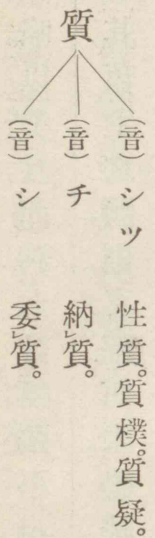 質
(音) シツ 性質。質樸。質疑。
(音) チ 納レ質。
(音) シ 委レ質。